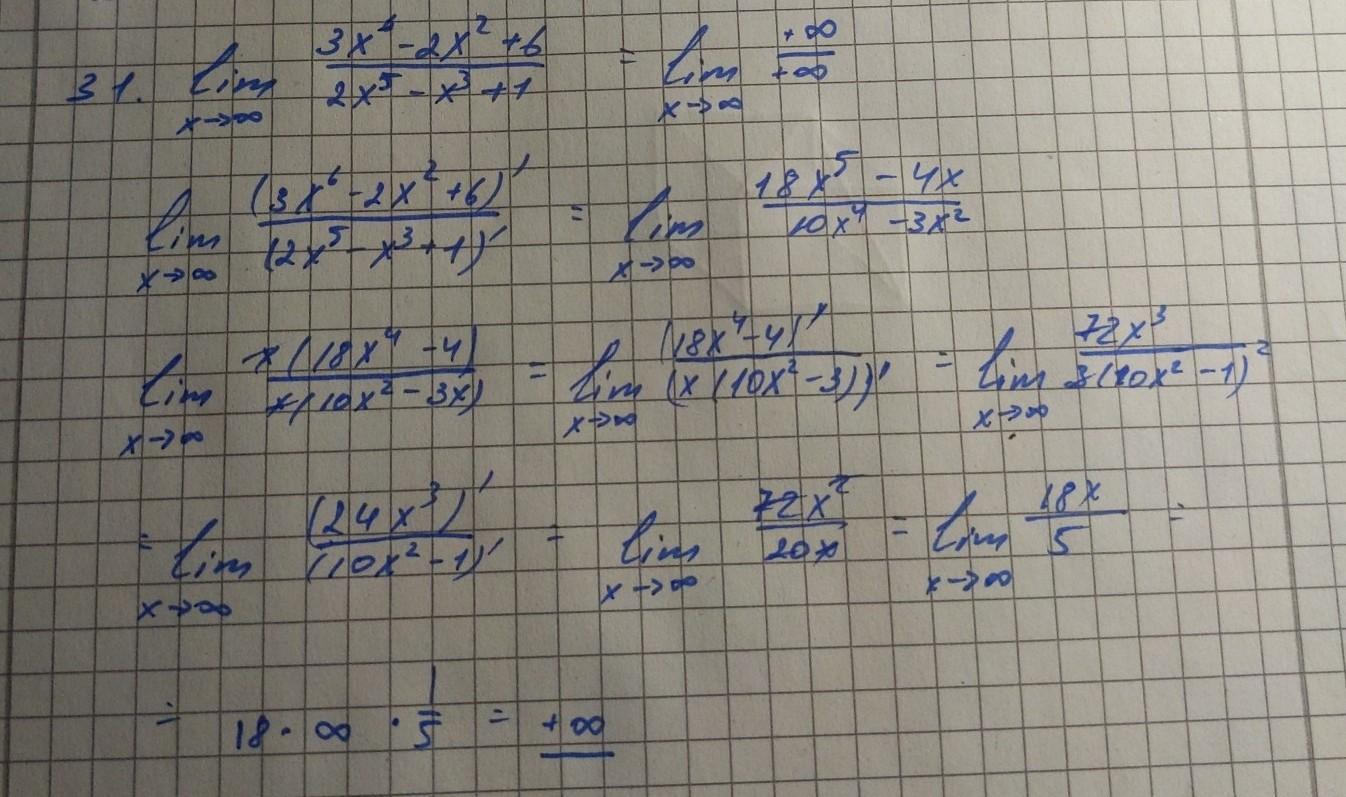 31. lim x→∞ (3x⁶ - 2x² + 6)/(2x⁵ - x³ + 1) = lim x→∞ +∞/+∞
lim x→∞ (3x⁶ - 2x² + 6)'/(2x⁵ - x³ + 1)' = lim x→∞ (18x⁵ - 4x)/(10x⁴ - 3x²)
lim x→∞ x(18x⁴ - 4)/x(10x² - 3x) = lim x→∞ (18x⁴ - 4)'/(x(10x² - 3))' = lim x→∞ 72x³/3(10x² - 1)
= lim x→∞ (24x³)'/(10x² - 1)' = lim x→∞ 72x²/20x = lim x→∞ 18x/5 =
= 18 · ∞ · 1/5 = +∞